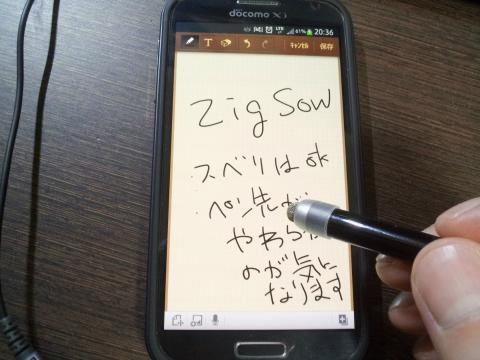 docomo Xi
61% 20:36
T キャンセル 保存
ZigSow
スベリはok
ペン先が
やわら
のが気に
なります